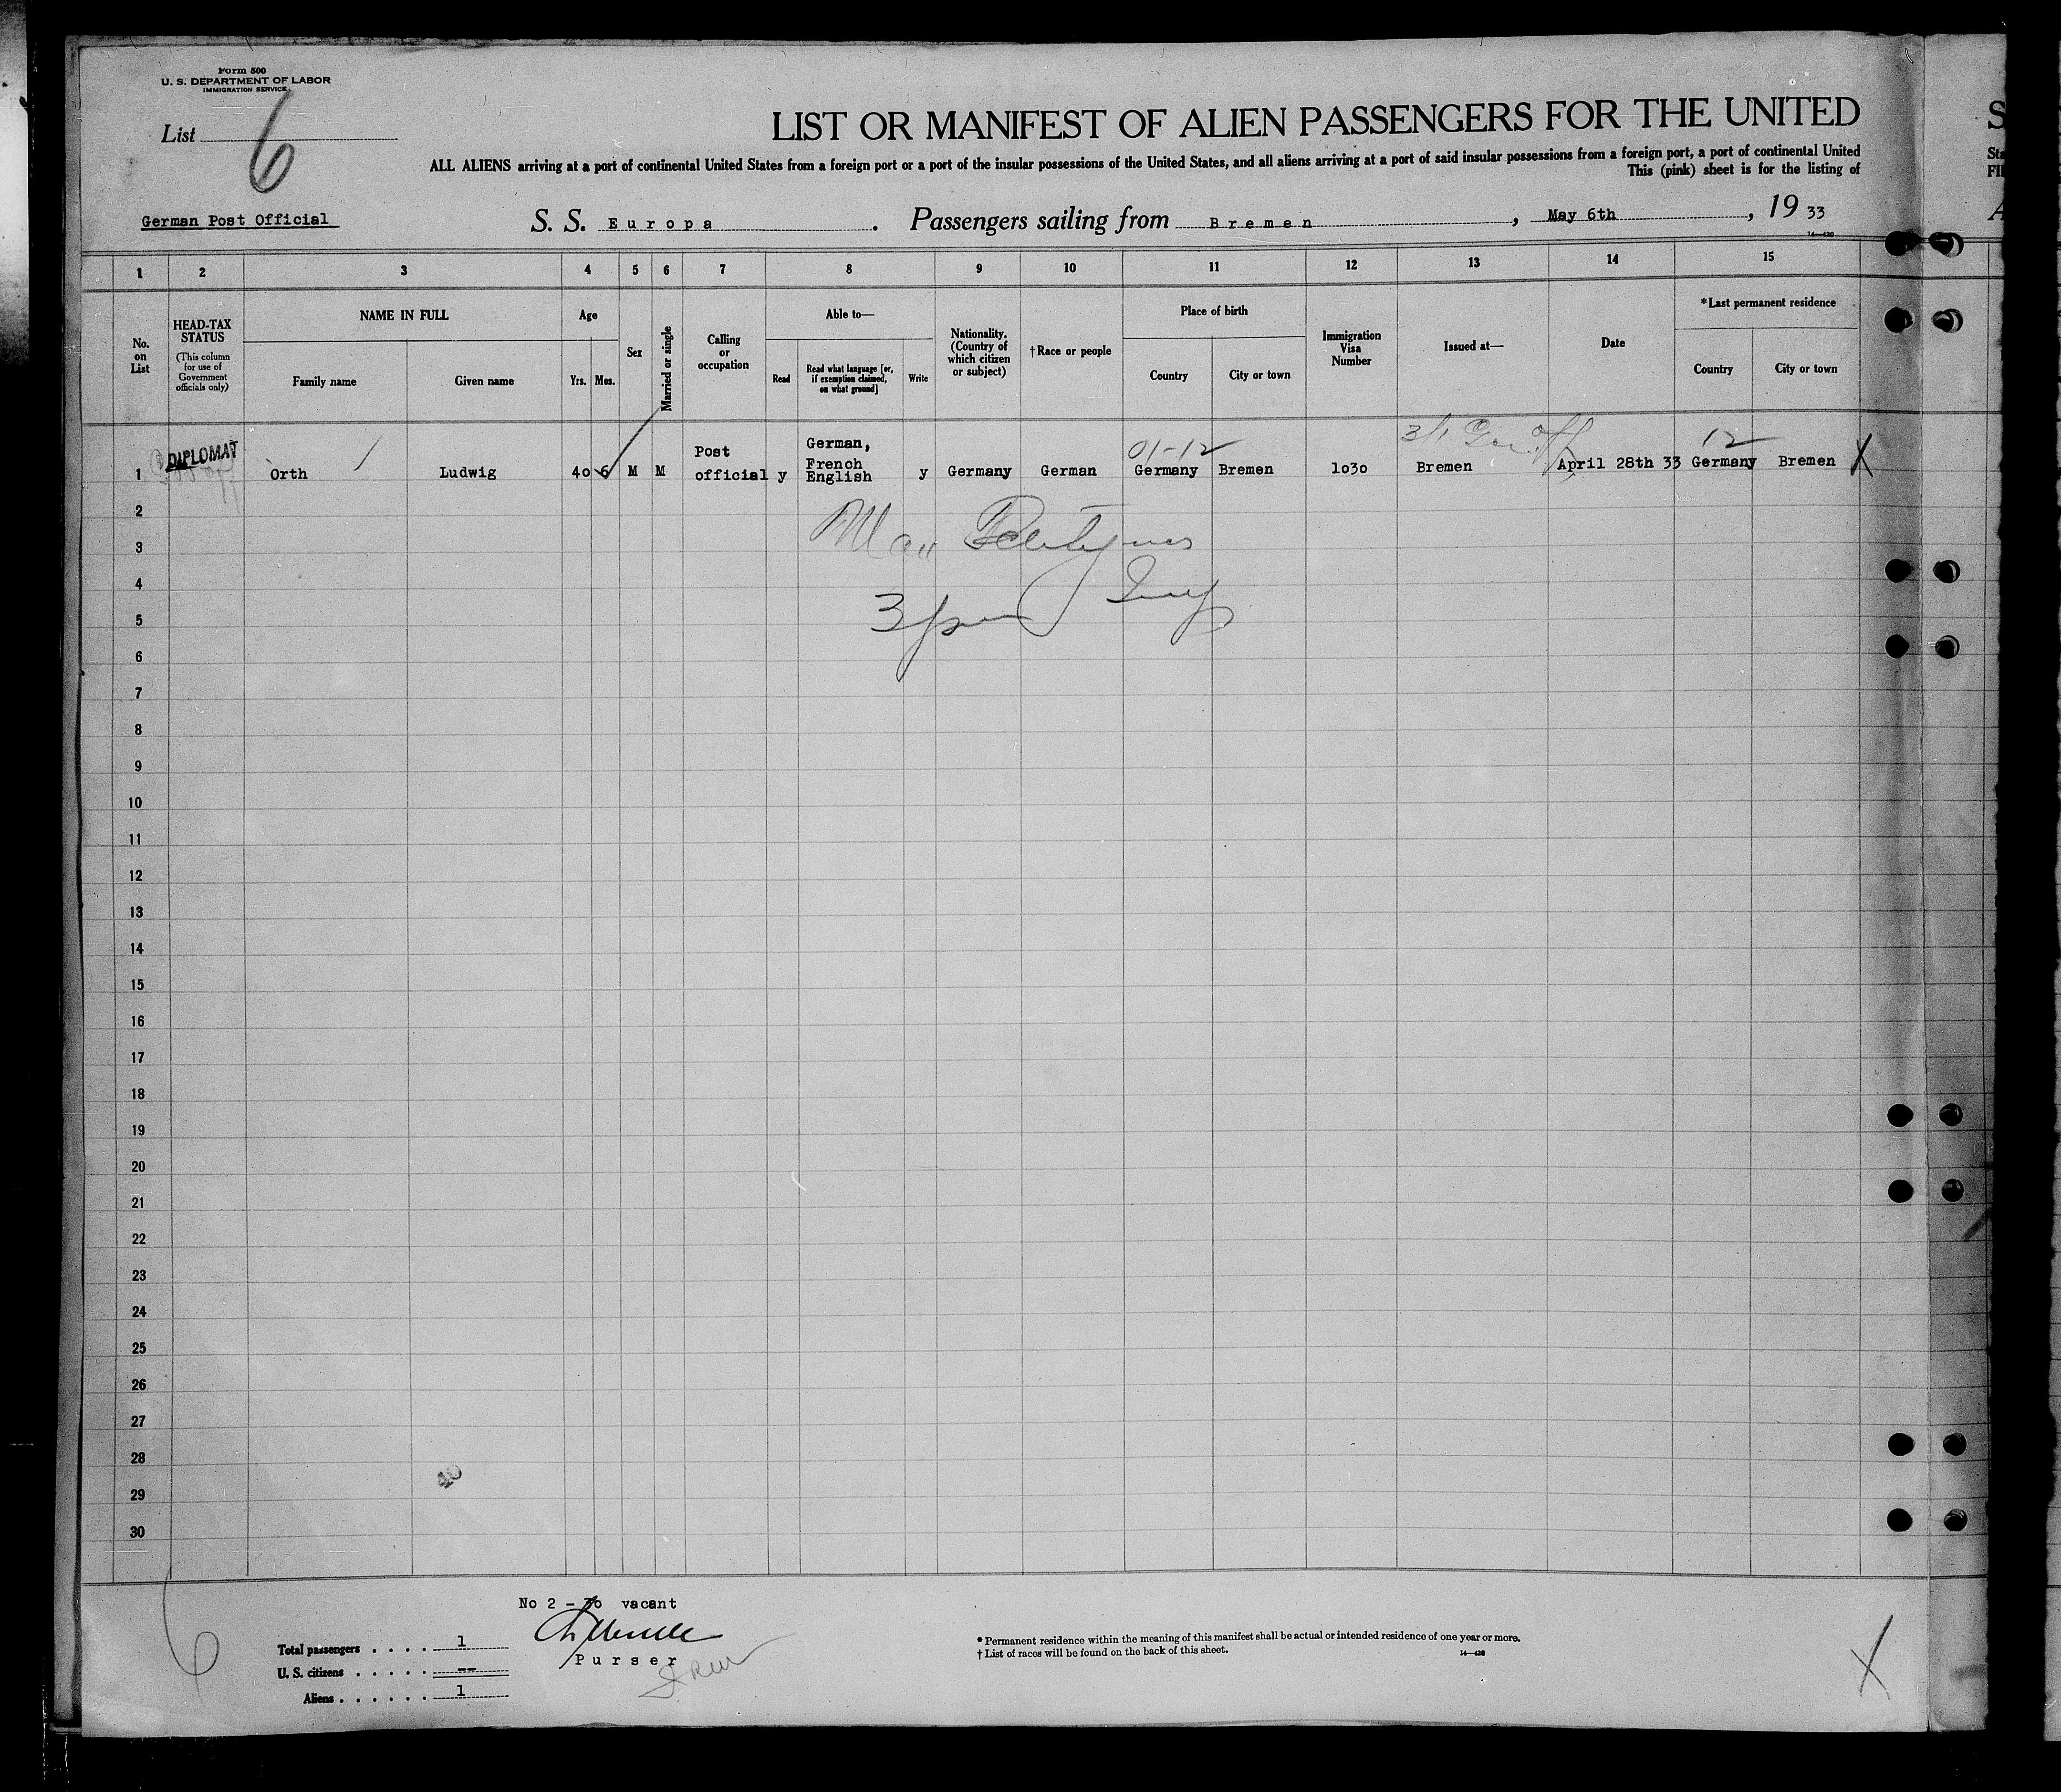 Form 500
U. S. DEPARTMENT OF LABOR
IMMIGRATION SERVICE
List 6
LIST OR MANIFEST OF ALIEN PASSENGERS FOR THE UNITED
ALL ALIENS arriving at a port of continental United States from a foreign port or a port of the insular possessions of the United States, and all aliens arriving at a port of said insular possessions from a foreign port, a port of continental United
This (pink) sheet is for the listing of
German Post Official
S. S. Europa. Passengers sailing from Bremen, May 6th, 19 33
14—430
1 2 3 4 5 6 7 8 9 10 11 12 13 14 15
No. on List
HEAD-TAX STATUS
(This column for use of Government officials only)
NAME IN FULL
Family name Given name
Age
Yrs. Mos.
Sex
Married or single
Calling or occupation
Able to—
Read
Read what language [or, if exemption claimed, on what ground]
Write
Nationality. (Country of which citizen or subject)
†Race or people
Place of birth
Country City or town
Immigration Visa Number
Issued at—
Date
*Last permanent residence
Country City or town
01-12 12
1 DIPLOMAT Orth Ludwig 40 6 M M Post official y German, French English y Germany German Germany Bremen 1030 Bremen April 28th 33 Germany Bremen X
2
3
4
5
6
7
8
9
10
11
12
13
14
15
16
17
18
19
20
21
22
23
24
25
26
27
28
29
30
40
No 2 - 30 vacant
Purser
Total passengers . . . . 1
U. S. citizens . . . . . --
Aliens . . . . . . 1
6
* Permanent residence within the meaning of this manifest shall be actual or intended residence of one year or more.
† List of races will be found on the back of this sheet.
14—430
X